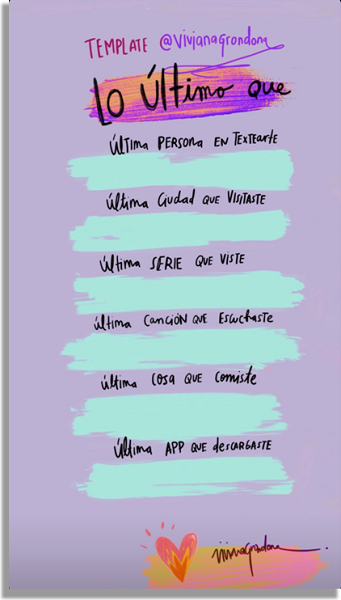 TEMPLATE @vivianagrondona
Lo Último que
Última PERSONA EN TExTearte
última Ciudad que VISITASTE
última SERIE que VISTE
última CANCIÓN QUE ESCUCHASTE
última COSA QUE Comiste
última APP QUE desCARGASTE
vivianagrondona